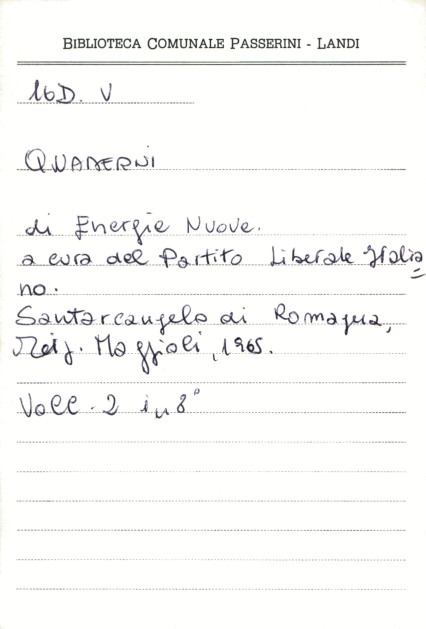 BIBLIOTECA COMUNALE PASSERINI - LANDI
16D. V
QUADERNI
di Energie Nuove.
a cura del Partito Liberale Italia=
no.
Santarcangelo di Romagna,
Maggioli, 1965.
Voll. 2 in 8°